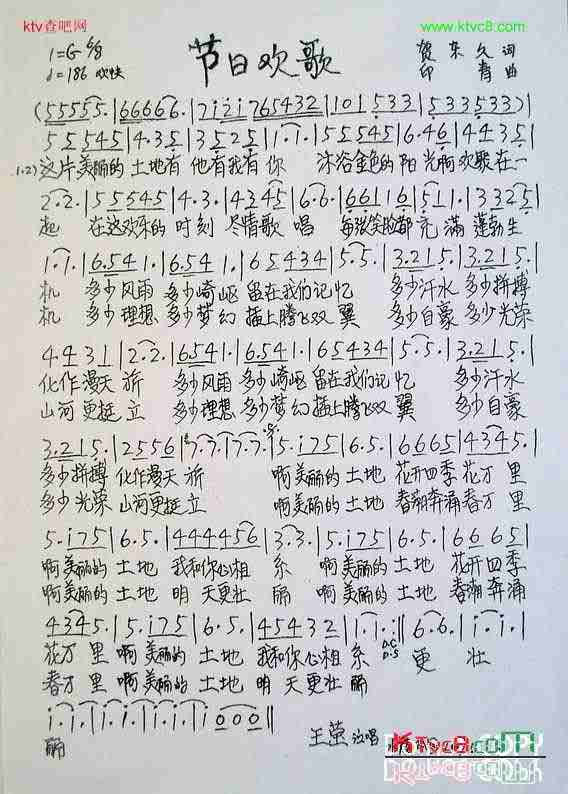 ktv查吧网 www.ktvc8.com
1=G 6/8 节日欢歌 贺东久 词
♩.=186 欢快 印青 曲
(55555.|66666.|7i2i 765432|101 533|533533)|
555545|4.35|3525|1.1.|555545|6.46|4435|
1.2)这片美丽的土地有 他有我有你 沐浴金色的阳光啊欢聚在一
2.2.|555545|4.3.|4345|6.6.|66116|51.|3325|
起 在这欢乐的时刻 尽情歌唱 每张笑脸都充满蓬勃生
1.1.|6.541.|6.541.|652434|5.5.|3.215.|3.215.|
机 多少风雨 多少崎岖 留在我们记忆 多少汗水 多少拼搏
机 多少理想 多少梦幻 插上腾飞双翼 多少自豪 多少光荣
4431|2.2.|6.541.|6.541.|665434|5.5.|3.215.|
化作漫天旂 多少风雨 多少崎岖 留在我们记忆 多少汗水
山河更挺立 多少理想 多少梦幻 插上腾飞双翼 多少自豪
3.215.|2556|7.7.|7.7.|5.i75|6.5.|6665|4345.|
多少拼搏 化作漫天旂 啊美丽的土地 花开四季花万里
多少光荣 山河更挺立 啊美丽的土地 春潮奔涌春万里
5.i75|6.5.|444456|3.3.|5.i75|6.5.|6665|
啊美丽的土地 我和你心相系 啊美丽的土地 花开四季
啊美丽的土地 明天更壮丽 啊美丽的土地 春潮奔涌
4345.|5.i75|6.5.|45432|1.1.:‖6.6.|i.i.|
花万里 啊美丽的土地 我和你心相系 D.C. D.S 更壮
春万里 啊美丽的土地 明天更壮丽
i.i.|i.i.|i.i.|i.i.|i000‖
丽 王莹 演唱 KTvc8